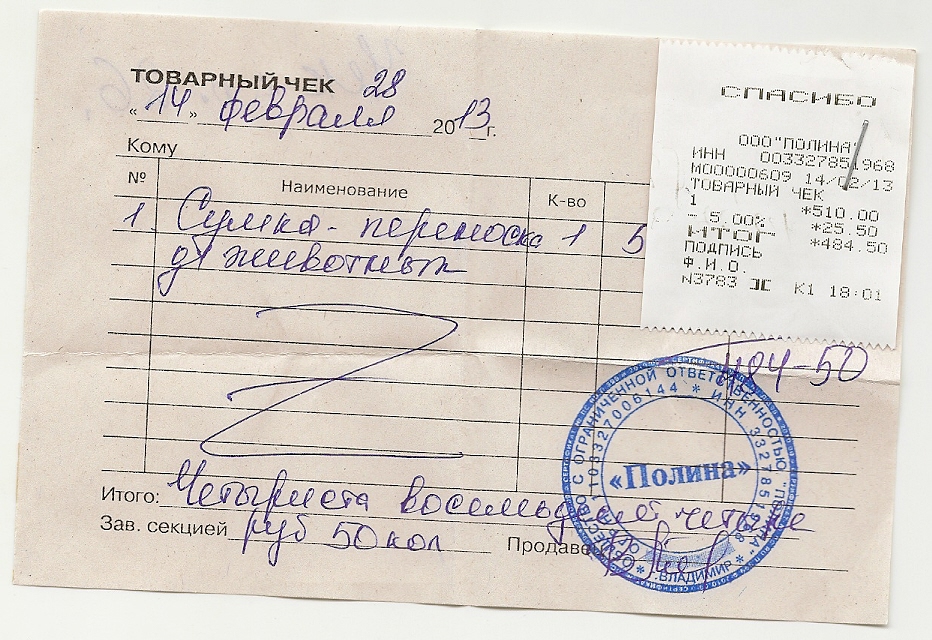 ТОВАРНЫЙ ЧЕК 28
« 14 » февраля 2013г.
Кому
№ Наименование К-во
1 Сумка-переноска 1 5
дл животных
484-50
Итого: Четыриста восемьдесят четыре
Зав. секцией руб 50 коп Продавец
СПАСИБО
ООО "ПОЛИНА"
ИНН 003327851968
М00000609 14/02/13
ТОВАРНЫЙ ЧЕК
1 *510.00
- 5.00% *25.50
ИТОГ *484.50
ПОДПИСЬ
Ф.И.О.
N3783 К1 18:01
ОБЩЕСТВО С ОГРАНИЧЕННОЙ ОТВЕТСТВЕННОСТЬЮ "ПОЛИНА"
* ИНН 3327851968
ОГРН 1103327006144
«Полина»
* г. ВЛАДИМИР *